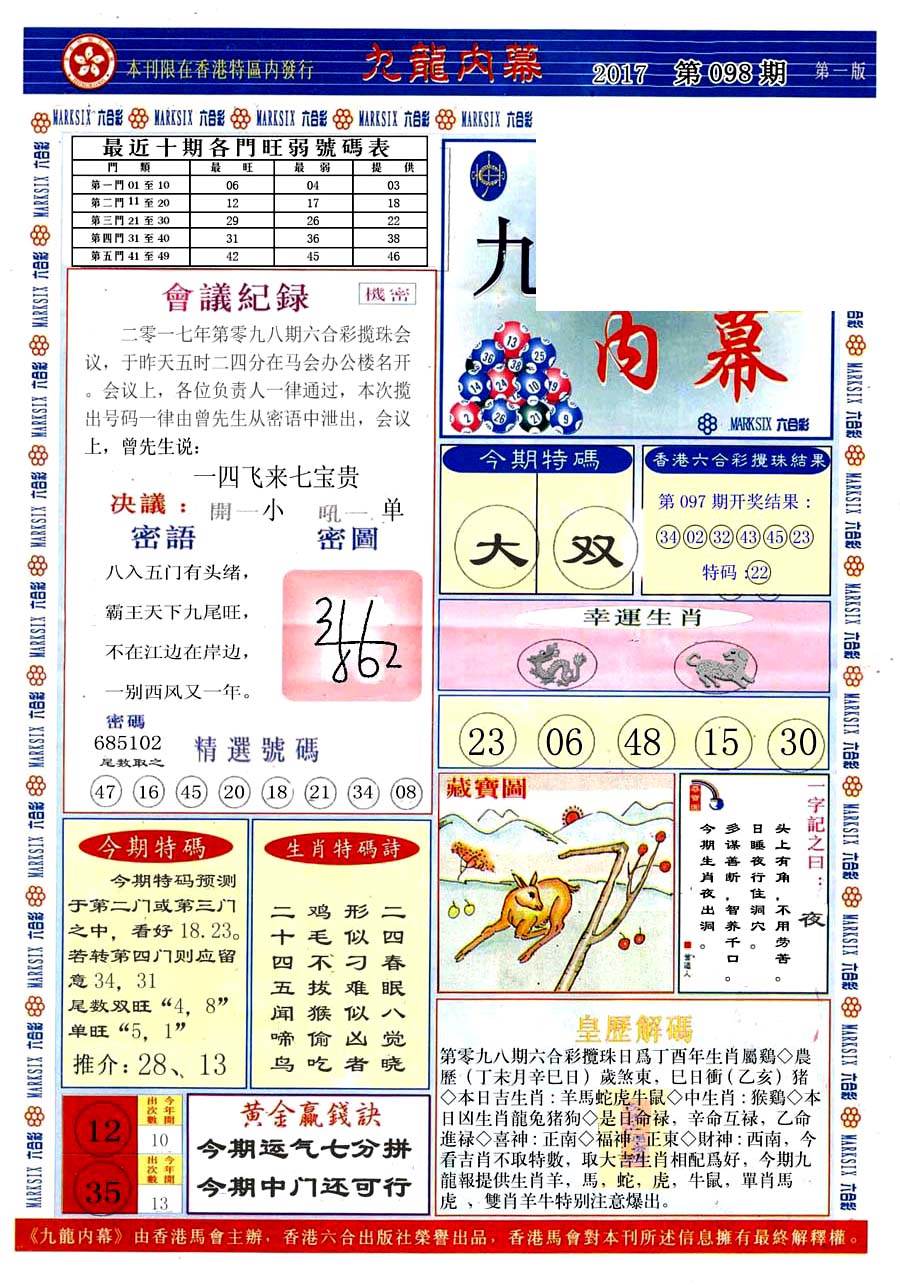 本刊限在香港特區內發行
九龍內幕
2017 第098期
第一版
MARKSIX 六合彩 MARKSIX 六合彩 MARKSIX 六合彩 MARKSIX 六合彩 MARKSIX 六合彩
最近十期各門旺弱號碼表
門類 最旺 最弱 提供
第一門 01 至 10 06 04 03
第二門 11 至 20 12 17 18
第三門 21 至 30 29 26 22
第四門 31 至 40 31 36 38
第五門 41 至 49 42 45 46
會議紀録
機密
二零一七年第零九八期六合彩揽珠会
议，于昨天五时二四分在马会办公楼名开
。会议上，各位负责人一律通过，本次揽
出号码一律由曾先生从密语中泄出，会议
上，曾先生说：
一四飞来七宝贵
决議： 開一小 吼一 单
密語 密圖
八入五门有头绪，
霸王天下九尾旺，
不在江边在岸边，
一别西风又一年。
密碼
685102
尾数取之
精選號碼
47 16 45 20 18 21 34 08
九
内幕
MARKSIX 六合彩
今期特碼
大 双
香港六合彩攪珠結果
第 097 期开奖结果：
34 02 32 43 45 23
特码：22
幸運生肖
23 06 48 15 30
藏寶圖
一字記之曰：夜
头上有角，不用劳苦。
日睡夜行住洞穴。
多谋善断，智养千口。
今期生肖夜出洞。
今期特碼
今期特码预测
于第二门或第三门
之中，看好 18.23。
若转第四门则应留
意 34，31
尾数双旺“4，8”
单旺“5，1”
推介：28、13
生肖特碼詩
二四春眠八觉晓
形似刁难似凶者
鸡毛不拔猴偷吃
二十四五闻啼鸟
12 今年開出次數 10
35 今年開出次數 13
黄金赢錢訣
今期运气七分拼
今期中门还可行
皇歷解碼
第零九八期六合彩攪珠日爲丁酉年生肖屬鷄◇農
歷（丁未月辛巳日）歲煞東，巳日衝（乙亥）猪
◇本日吉生肖：羊馬蛇虎牛鼠◇中生肖：猴鷄◇本
日凶生肖龍兔猪狗◇是日命禄，辛命互禄，乙命
進禄◇喜神：正南◇福神：正東◇財神：西南，今
看吉肖不取特數，取大吉生肖相配爲好，今期九
龍報提供生肖羊，馬，蛇，虎，牛鼠，單肖馬
虎、雙肖羊牛特别注意爆出。
《九龍內幕》由香港馬會主辦，香港六合出版社榮譽出品，香港馬會對本刊所述信息擁有最終解釋權。